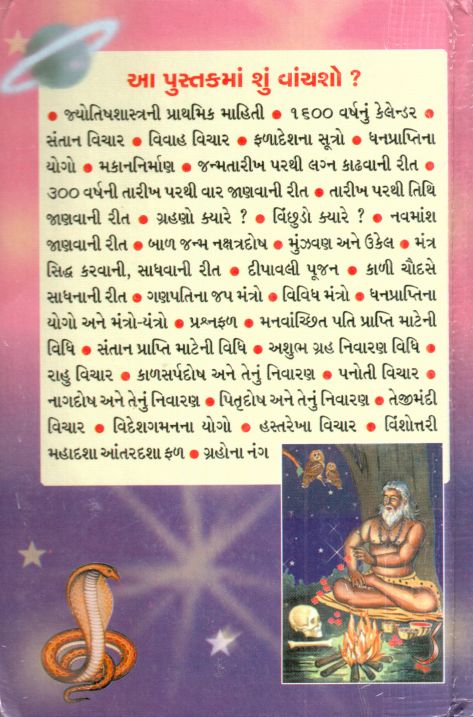 આ પુસ્તકમાં શું વાંચશો ?
• જ્યોતિષશાસ્ત્રની પ્રાથમિક માહિતી • ૧૬૦૦ વર્ષનું કેલેન્ડર •
સંતાન વિચાર • વિવાહ વિચાર • ફળાદેશના સૂત્રો • ધનપ્રાપ્તિના
યોગો • મકાનનિર્માણ • જન્મતારીખ પરથી લગ્ન કાઢવાની રીત •
૩૦૦ વર્ષની તારીખ પરથી વાર જાણવાની રીત • તારીખ પરથી તિથિ
જાણવાની રીત • ગ્રહણો ક્યારે ? • વિંછુડો ક્યારે ? • નવમાંશ
જાણવાની રીત • બાળ જન્મ નક્ષત્રદોષ • મુંઝવણ અને ઉકેલ • મંત્ર
સિદ્ધ કરવાની, સાધવાની રીત • દીપાવલી પૂજન • કાળી ચૌદસે
સાધનાની રીત • ગણપતિના જપ મંત્રો • વિવિધ મંત્રો • ધનપ્રાપ્તિના
યોગો અને મંત્રો-યંત્રો • પ્રશ્નફળ • મનવાંચ્છિત પતિ પ્રાપ્તિ માટેની
વિધિ • સંતાન પ્રાપ્તિ માટેની વિધિ • અશુભ ગ્રહ નિવારણ વિધિ •
રાહુ વિચાર • કાળસર્પદોષ અને તેનું નિવારણ • પનોતી વિચાર •
નાગદોષ અને તેનું નિવારણ • પિતૃદોષ અને તેનું નિવારણ • તેજીમંદી
વિચાર • વિદેશગમનના યોગો • હસ્તરેખા વિચાર • વિંશોત્તરી
મહાદશા આંતરદશા ફળ • ગ્રહોના નંગ